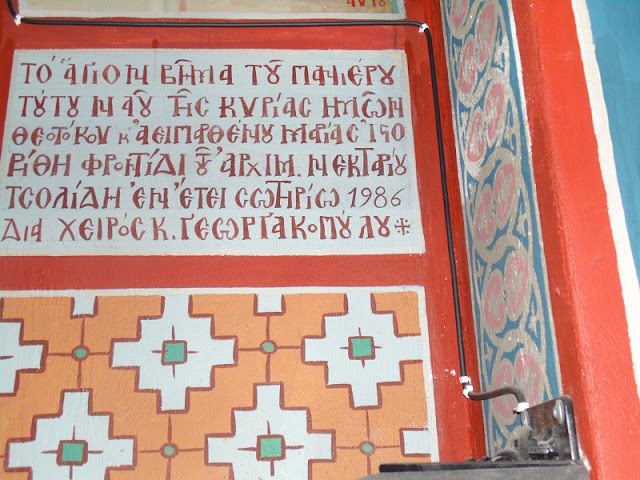 ΤΟ ἍΓΙΟΝ ΒΗ͂ΜΑ ΤΟΥ͂ ΠΑΝΙΕΡΟΥ
ΤΟΥΤΟΥ ΝΑΟΥ͂ ΤΗ͂Σ ΚΥΡΙΑΣ ΗΜΩ͂Ν
ΘΕΟΤΟΚΟΥ Κ ἈΕΙΠΑΡΘΕΝΟΥ ΜΑΡΙΑΣ ἹϚΟ
ΡΙΘΗ ΦΡΟΝΤΙΔΙ ΤΟΥ͂ ἈΡΧΙΜ. ΝΕΚΤΑΡΙΟΥ
ΤΣΟΛΙΔΗ ἘΝ ἜΤΕΙ ΣΩΤΗΡΙΩ 1986
ΔΙΑ ΧΕΙΡΌΣ Κ. ΓΕΩΡΓΑΚΟΠΟΥΛΟΥ